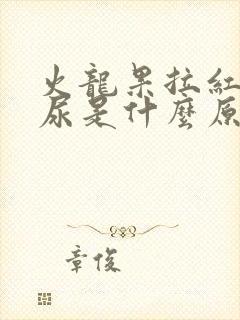 火龍果拉紅
尿是什麼原
章俊